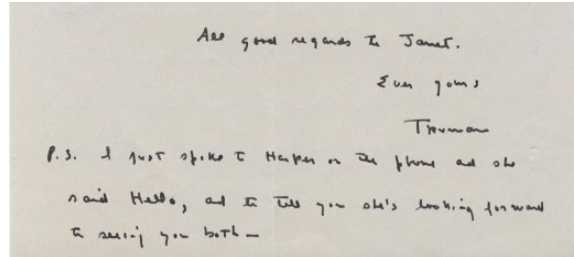 All good regards to Janet.
Ever yours
Truman
P.S. I just spoke to Harper on the phone and she
said Hello, and to tell you she's looking forward
to seeing you both—